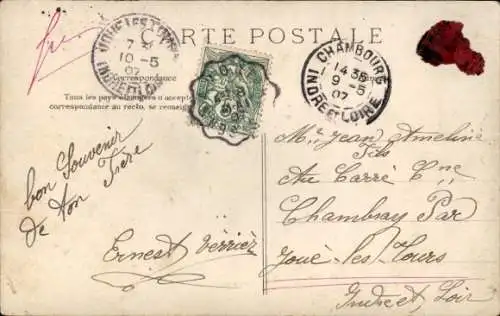 CARTE POSTALE
JOUÉ-LES-TOURS
7
10-5
07
INDRE ET LOIRE
CHAMBOURG
14 35
9-5
07
INDRE ET LOIRE
Correspondance
Tous les pays étrangers n'accep
correspondance au recto, se renseigne
Bon Souvenir
de ton Frère
Ernest Verrier
Mr Jean Ameline
Fils
Au Carré Cne
Chambray Par
Joué-les-Tours
Indre et Loir